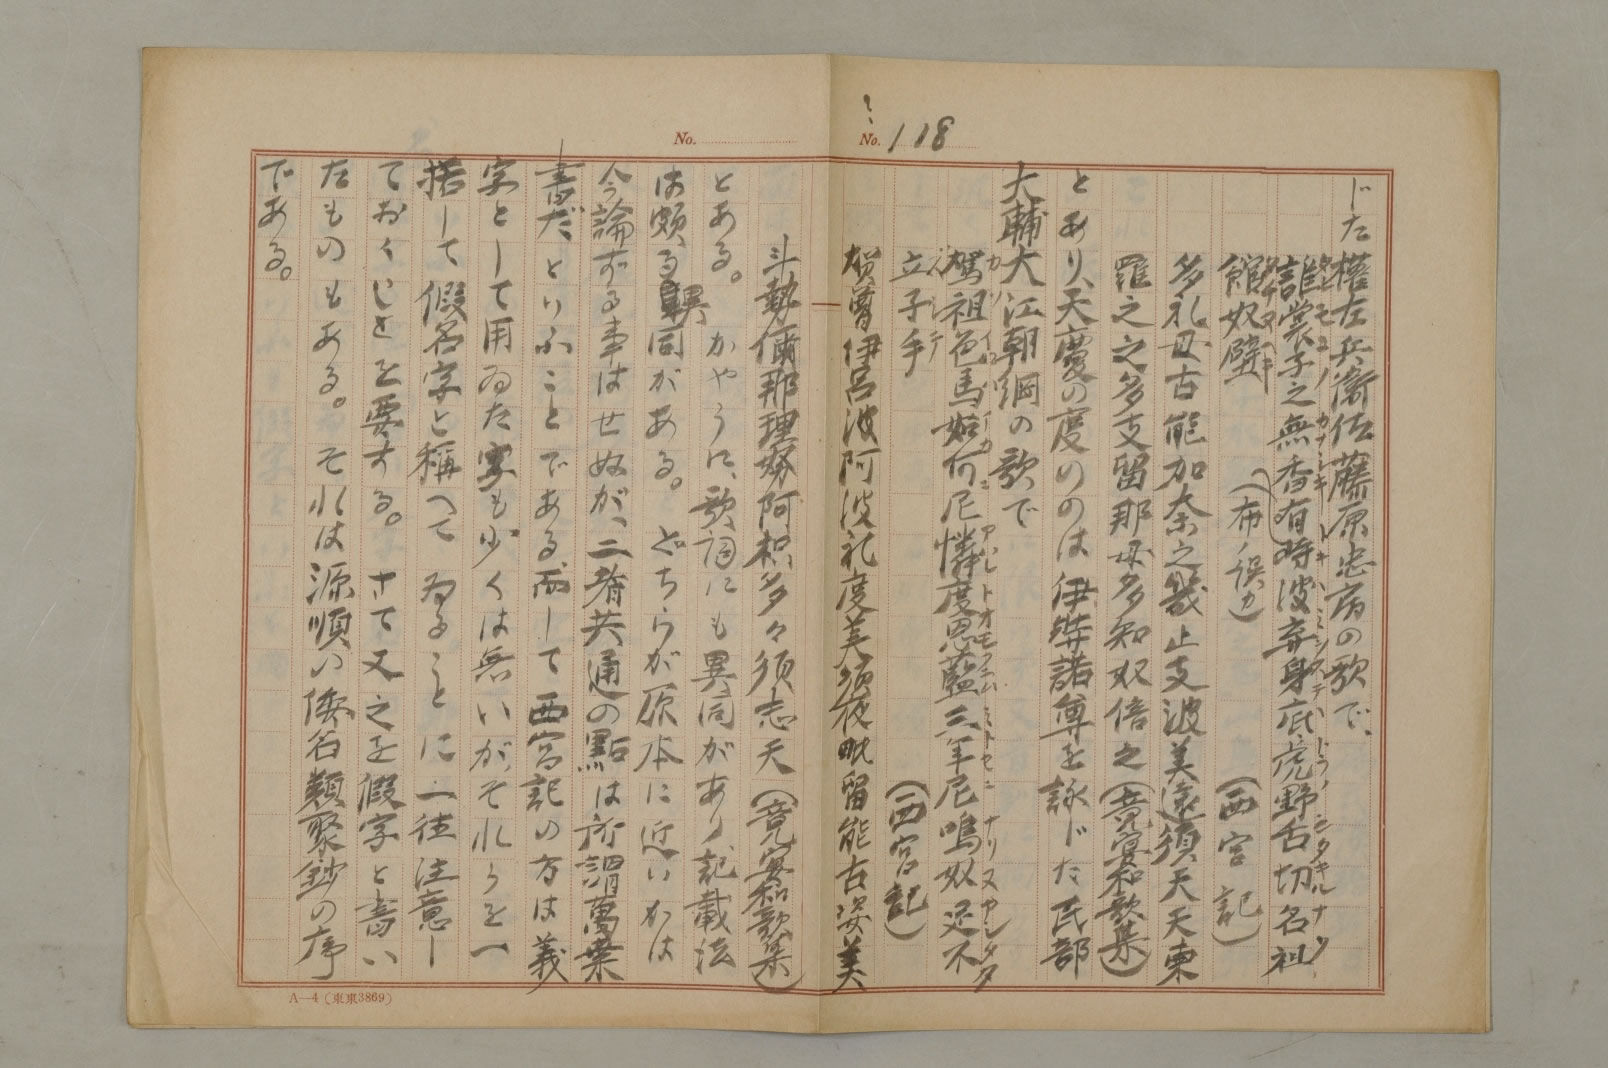 No. 118
じた權左兵衛佐藤原忠房の歌で、
誰裳子之無香有時波弃身底虎野舌切名祖
館奴壁 (西宮記)
(布ノ誤カ)
多礼毋古能加奈之畿止支波美遠須天天東
羅之之多支留那毋多知奴倍之(竟宴和歌集)
とあり、天慶の度のゝは伊弉諾尊を詠じた民部
大輔大江朝綱の歌で
賀祖色馬如何尼憐度思藍三年尼鳴奴足不
立子手 (西宮記)
賀曾伊呂波阿波礼度美須夜毗留能古波美
斗勢儞那理努阿枳多々須志天 (竟宴和歌集)
とある。かやうに、歌詞にも異同があり、記載法
は頗る異同がある。どちらが原本に近いかは
今論ずる事はせぬが、二者共通の點は所謂萬葉
書だといふことである。而して西宮記の方は義
字として用ゐた字も少くは無いが、それらを一
括して假名字と稱へてゐることに一往注意し
ておくことを要する。さて又之を假字と書い
たものもある。それは源順の倭名類聚鈔の序
である。
No.
A—4 (東東3869)